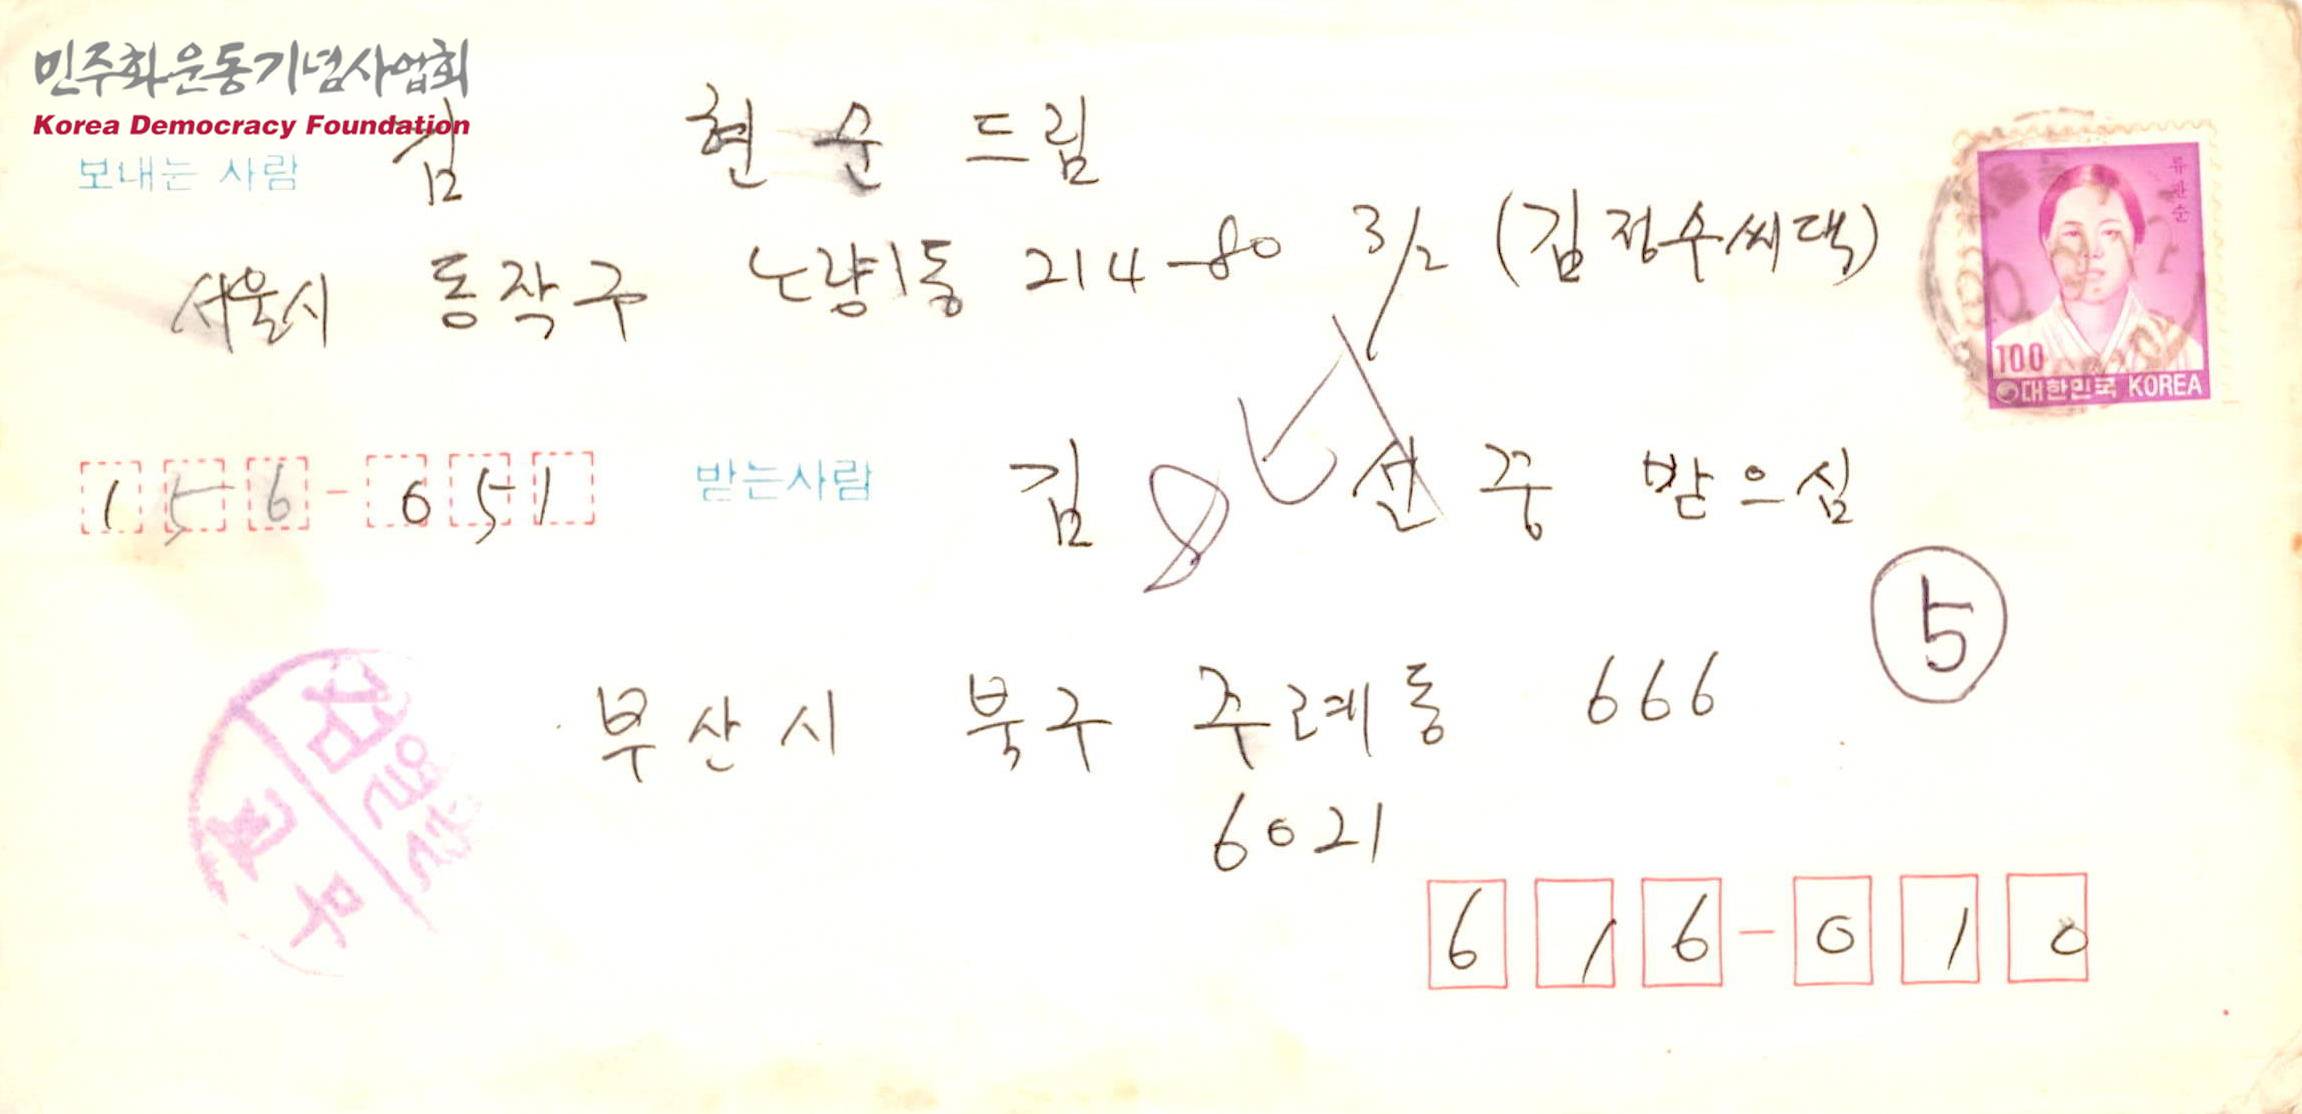 민주화운동기념사업회
Korea Democracy Foundation
보내는 사람 김 현순 드림
서울시 동작구 노량1동 214-80 3/2 (김정수씨댁)
류관순
100
대한민국 KOREA
156-051
받는사람 김 선꽁 받으심
5
부산시 북구 주례동 666
6021
616-010
검열
교무